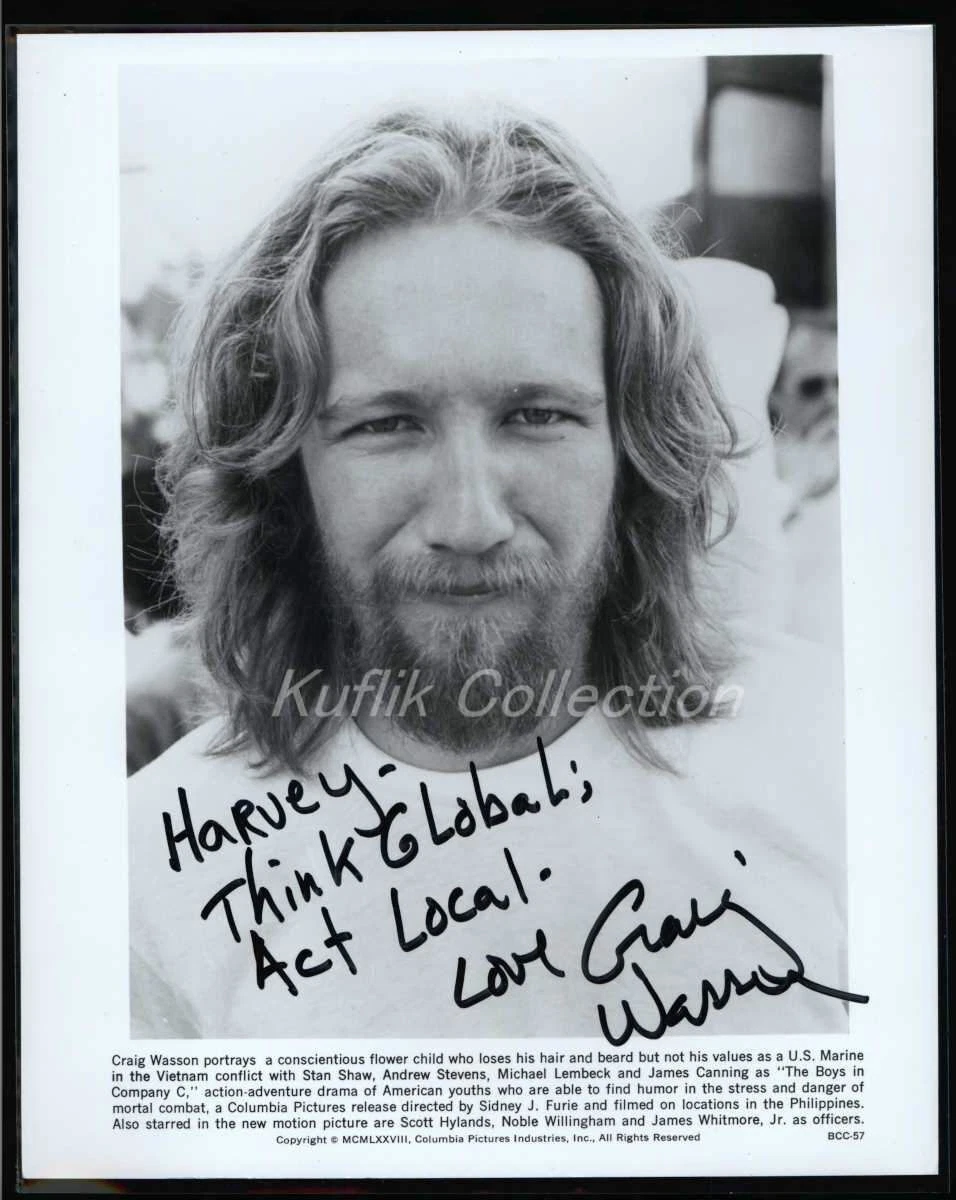 Kuflik Collection
Harvey-
Think Global;
Act Local.
Love Craig
Wasson
Craig Wasson portrays a conscientious flower child who loses his hair and beard but not his values as a U.S. Marine
in the Vietnam conflict with Stan Shaw, Andrew Stevens, Michael Lembeck and James Canning as "The Boys in
Company C," action-adventure drama of American youths who are able to find humor in the stress and danger of
mortal combat, a Columbia Pictures release directed by Sidney J. Furie and filmed on locations in the Philippines.
Also starred in the new motion picture are Scott Hylands, Noble Willingham and James Whitmore, Jr. as officers.
Copyright © MCMLXXVIII, Columbia Pictures Industries, Inc., All Rights Reserved BCC-57